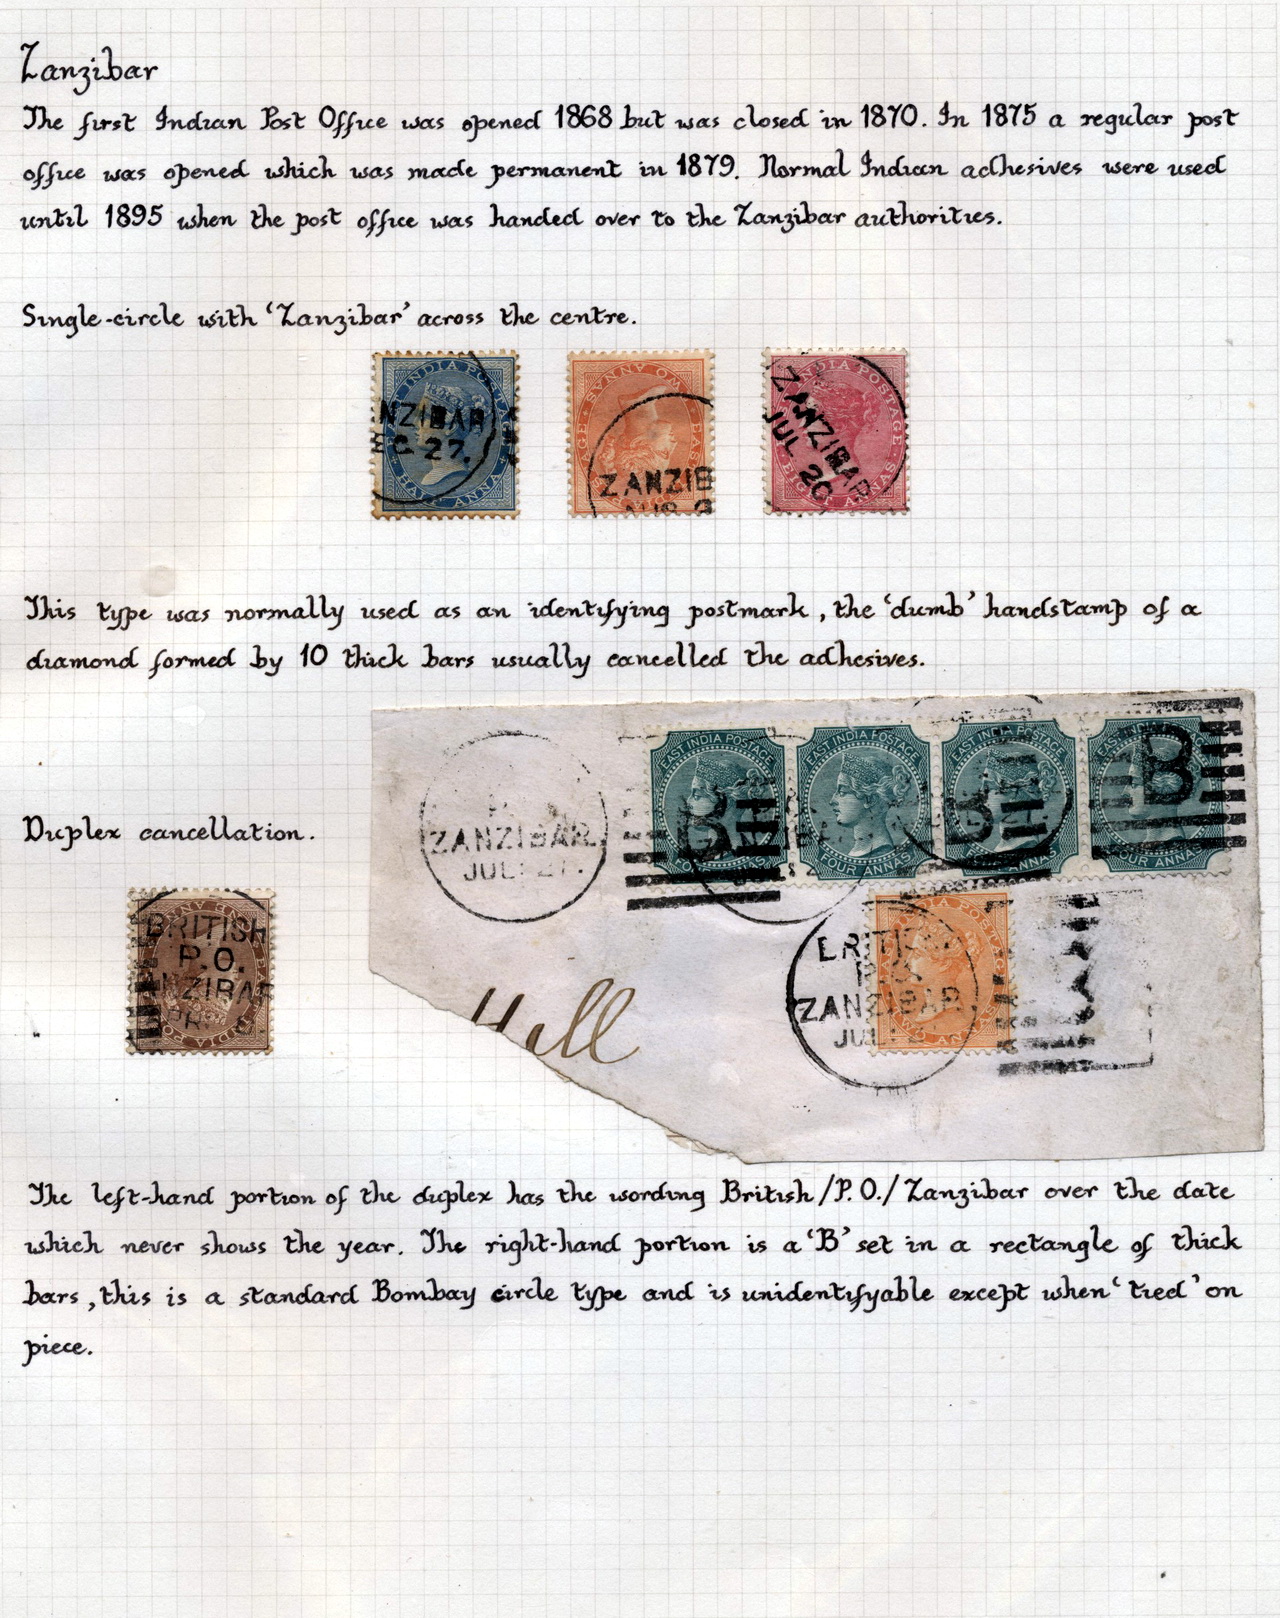 Zanzibar
The first Indian Post Office was opened 1868 but was closed in 1870. In 1875 a regular post
office was opened which was made permanent in 1879. Normal Indian adhesives were used
until 1895 when the post office was handed over to the Zanzibar authorities.
Single-circle with 'Zanzibar' across the centre.
INDIA POSTAGE
NZIBAR
EC. 27.
HALF ANNA
TWO ANNAS
ZANZIB
AUG
INDIA POSTAGE
ZANZIBAR
JUL 20
EIGHT ANNAS
This type was normally used as an identifying postmark, the 'dumb' handstamp of a
diamond formed by 10 thick bars usually cancelled the adhesives.
EAST INDIA POSTAGE
EAST INDIA POSTAGE
EAST INDIA POSTAGE
B
B
B
FOUR ANNAS
FOUR ANNAS
FOUR ANNAS
FOUR ANNAS
ZANZIBAR
JUL: 27.
Duplex cancellation.
BRITISH
P.O.
ANZIBAR
BRITISH
P.O.
ZANZIBAR
JUL: 2
Hill
The left-hand portion of the duplex has the wording British/P.O./Zanzibar over the date
which never shows the year. The right-hand portion is a 'B' set in a rectangle of thick
bars, this is a standard Bombay circle type and is unidentifyable except when 'tied' on
piece.